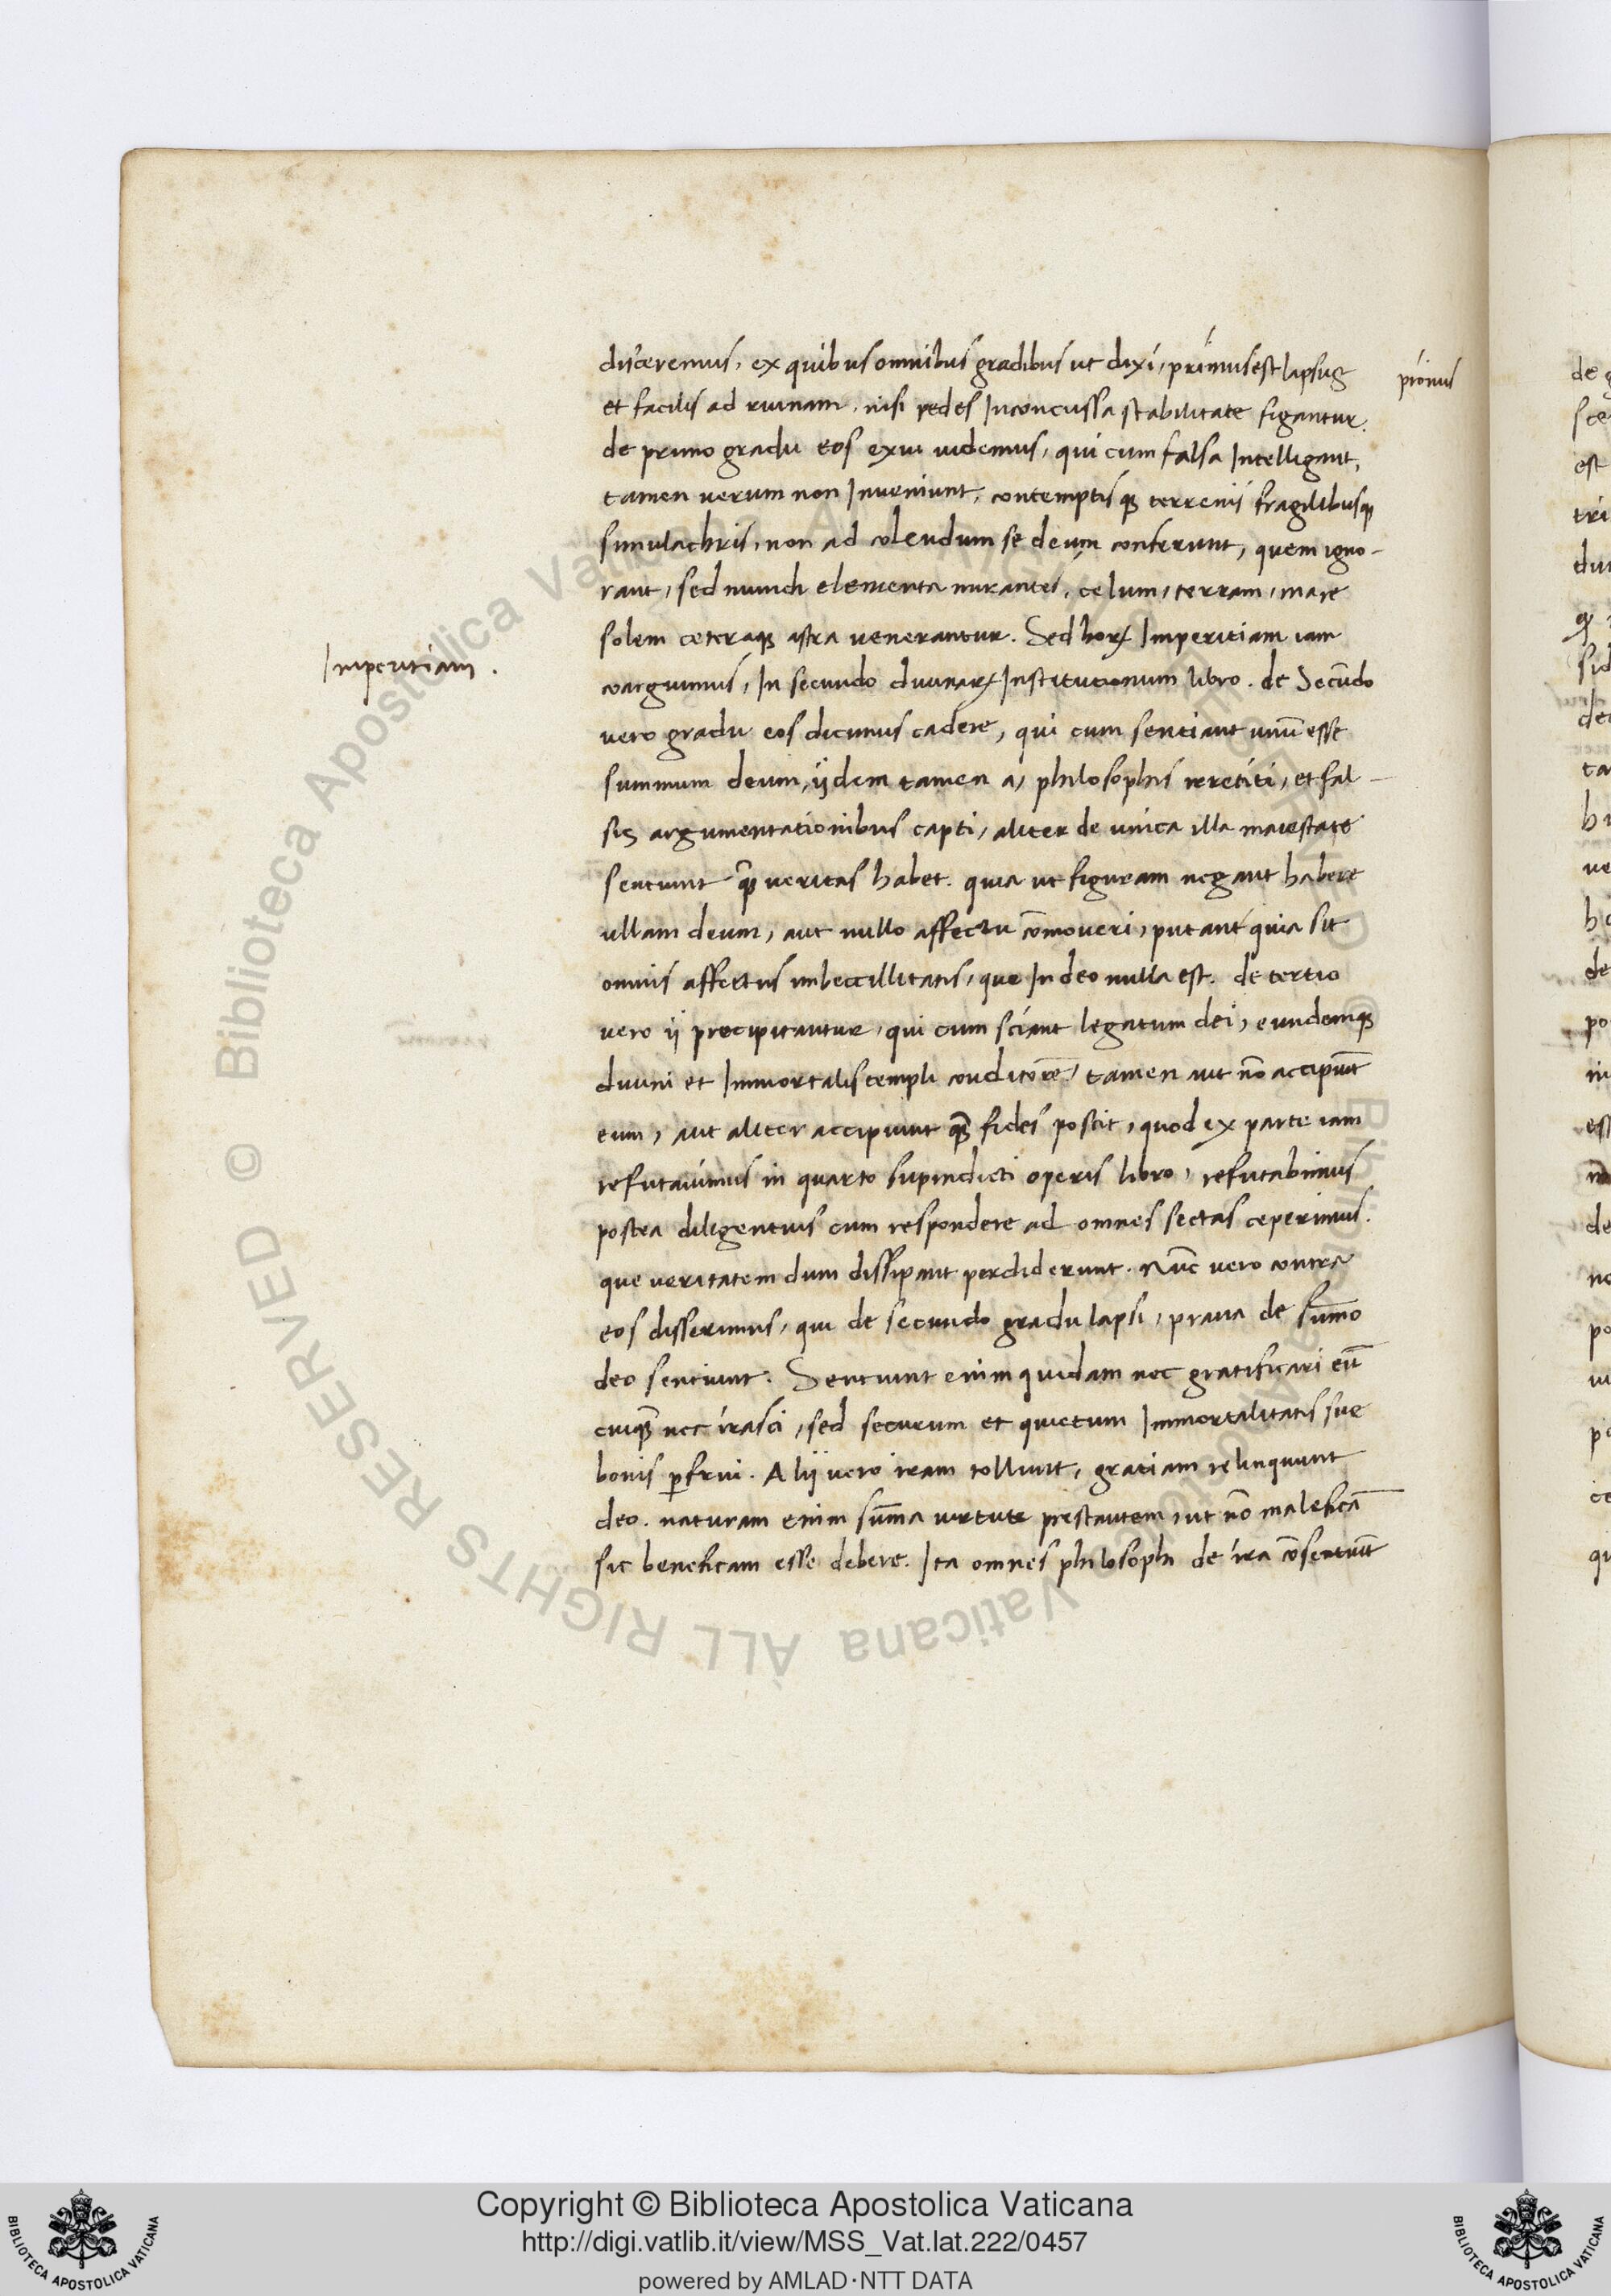 disceremus, ex quibus omnibus gradibus ut dixi, primus est lapsus
pronus
et facilis ad ruinam, nisi pedes Inconcussa stabilitate figantur.
de primo gradu eos exui uidemus, qui cum falsa Intelligant,
tamen uerum non Inueniunt, contemptisqꝫ terrenis fragilibusqꝫ
simulachris, non ad colendum se deum conferunt, quem igno-
rant, sed mundi elementa mirantes, celum, terram, mare
solem ceteraqꝫ astra venerantur. Sed horꝝ Imperitiam iam
Imperitiam.
coarguimus, In secundo diuinarꝝ Institutionum libro. de Secūdo
vero gradu eos dicimus cadere, qui cum sentiant unū esse
summum deum, ijdem tamen a, philosophis irretiti, et fal-
sis argumentationibus capti, aliter de unica illa maiestate
sentiunt qꝫ̄ veritas habet. quia ut figuram negant habere
ullam deum, aut nullo affectu cōmoueri, putant quia sit
omnis affectus imbecillitatis, que In deo nulla est. de tertio
vero ij precipitantur, qui cum sciant legatum dei, eundemqꝫ
diuini et Immortalis templi conditorē, tamen aut nō accipiūt
eum, aut aliter accipiunt qꝫ̄ fides poscit, quod ex parte iam
refutauimus in quarto supradicti operis libro, refutabimus
postea diligentius cum respondere ad omnes sectas ceperimus.
que veritatem dum dissipant perdiderunt. Nūc vero contra
eos disserimus, qui de secundo gradu lapsi, praua de sūmo
deo sentiunt. Sentiunt enim quidam nec gratificari eū
cuiqꝫ̄ nec irasci, sed securum et quietum Immortalitatis sue
bonis ꝑfrui. Alij vero iram tollunt, gratiam relinquunt
deo. naturam enim sūma uirtute prestantem, ut nō maleficā
sic beneficam esse debere. Ita omnes philosophi de ira cōsentiūt
Copyright © Biblioteca Apostolica Vaticana
http://digi.vatlib.it/view/MSS_Vat.lat.222/0457
powered by AMLAD·NTT DATA
BIBLIOTECA APOSTOLICA VATICANA
BIBLIOTECA APOSTOLICA VATICANA
© Biblioteca Apostolica Vaticana ALL RIGHTS RESERVED © Biblioteca Apostolica Vaticana ALL RIGHTS RESERVED